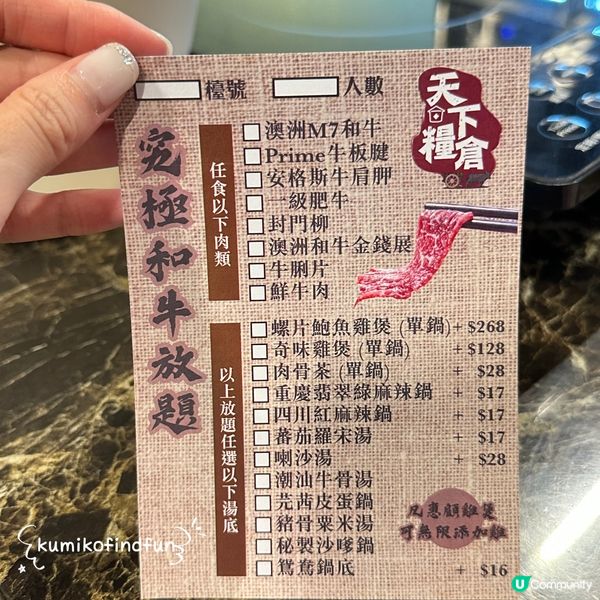 檯號 人數
天下糧倉
究極和牛放題
任食以下肉類
澳洲M7和牛
Prime牛板腱
安格斯牛肩胛
一級肥牛
封門柳
澳洲和牛金錢展
牛脷片
鮮牛肉
以上放題任選以下湯底
螺片鮑魚雞煲 (單鍋) + $268
奇味雞煲 (單鍋) + $128
肉骨茶 (單鍋) + $28
重慶翡翠綠麻辣鍋 + $17
四川紅麻辣鍋 + $17
蕃茄羅宋湯 + $17
喇沙湯 + $28
潮汕牛骨湯
芫茜皮蛋鍋
豬骨粟米湯
秘製沙嗲鍋
鴛鴦鍋底 + $16
凡惠顧雞煲
可無限添加雞
kumikofindfun
U Community